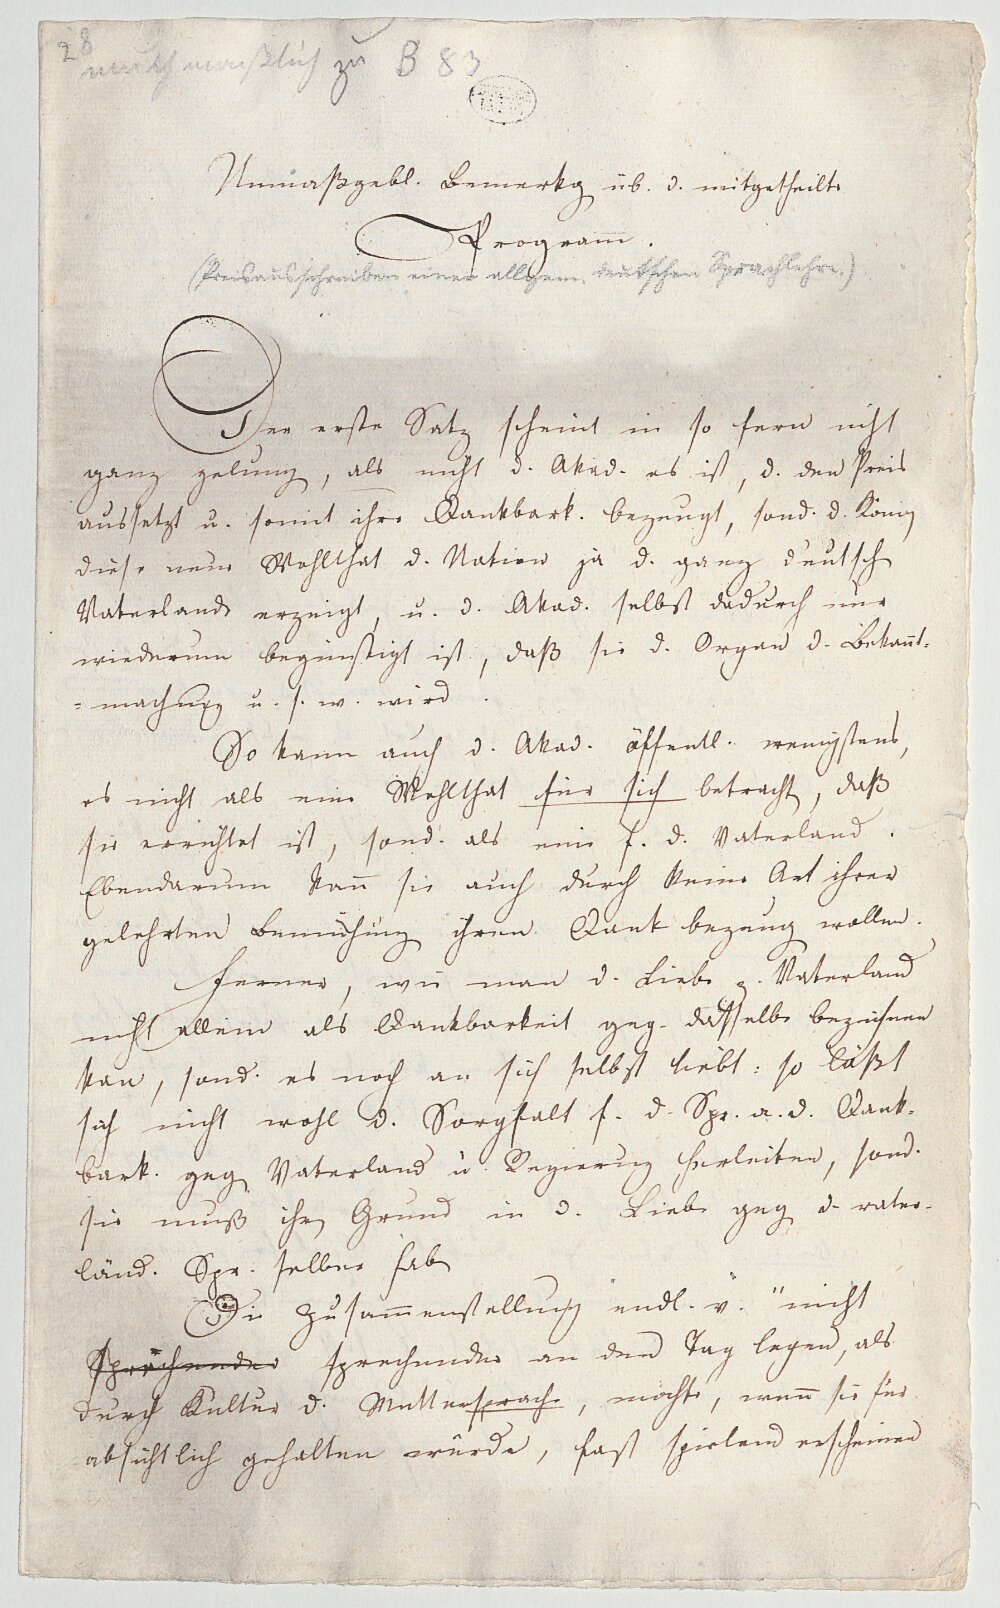 28
muthmaßlich zu B 83
Unmaßgebl. Bemerkg üb. d. mitgetheilte
Programm.
(Preisausschreiben einer allgem. deutschen Sprachlehre.)
Der erste Satz scheint in so fern nicht
ganz gelung, als nicht d. Akad. es ist, d. den Preis
aussetzt u. somit ihre Dankbark. bezeugt, sond. d. König
diese neue Wohlthat d. Nation ja d. ganz deutsch
Vaterlande erzeigt, u. d. Akad. selbst dadurch nur
wiederum begünstigt ist, daß sie d. Organ d. Bekannt-
=machung u. s. w. wird.
So kann auch d. Akad. öffentl. wenigstens,
es nicht als eine Wohlthat für sich betracht, daß
sie errichtet ist, sond. als eine f. d. Vaterland.
Ebendarum kann sie auch durch keine Art ihrer
gelehrten Bemühung ihren Dank bezeug wollen.
Ferner, wie man d. Liebe z. Vaterland
nicht allein als Dankbarkeit geg. dasselbe bezeichnen
kan, sond. es noch an sich selbst liebt: so läßt
sich nicht wohl d. Sorgfalt f. d. Spr. a. d. Dank-
bark. geg Vaterland u. Regierung herleiten, sond.
sie muß ihr Grund in d. Liebe geg d. vater-
länd. Spr. selber hab
Die Zusammenstellung endl. v. "nicht
sprechender sprechender an den Tag legen, als
durch Kultur d. Muttersprache, möchte, wenn sie für
absichtlich gehalten würde, fast spielend erscheinen